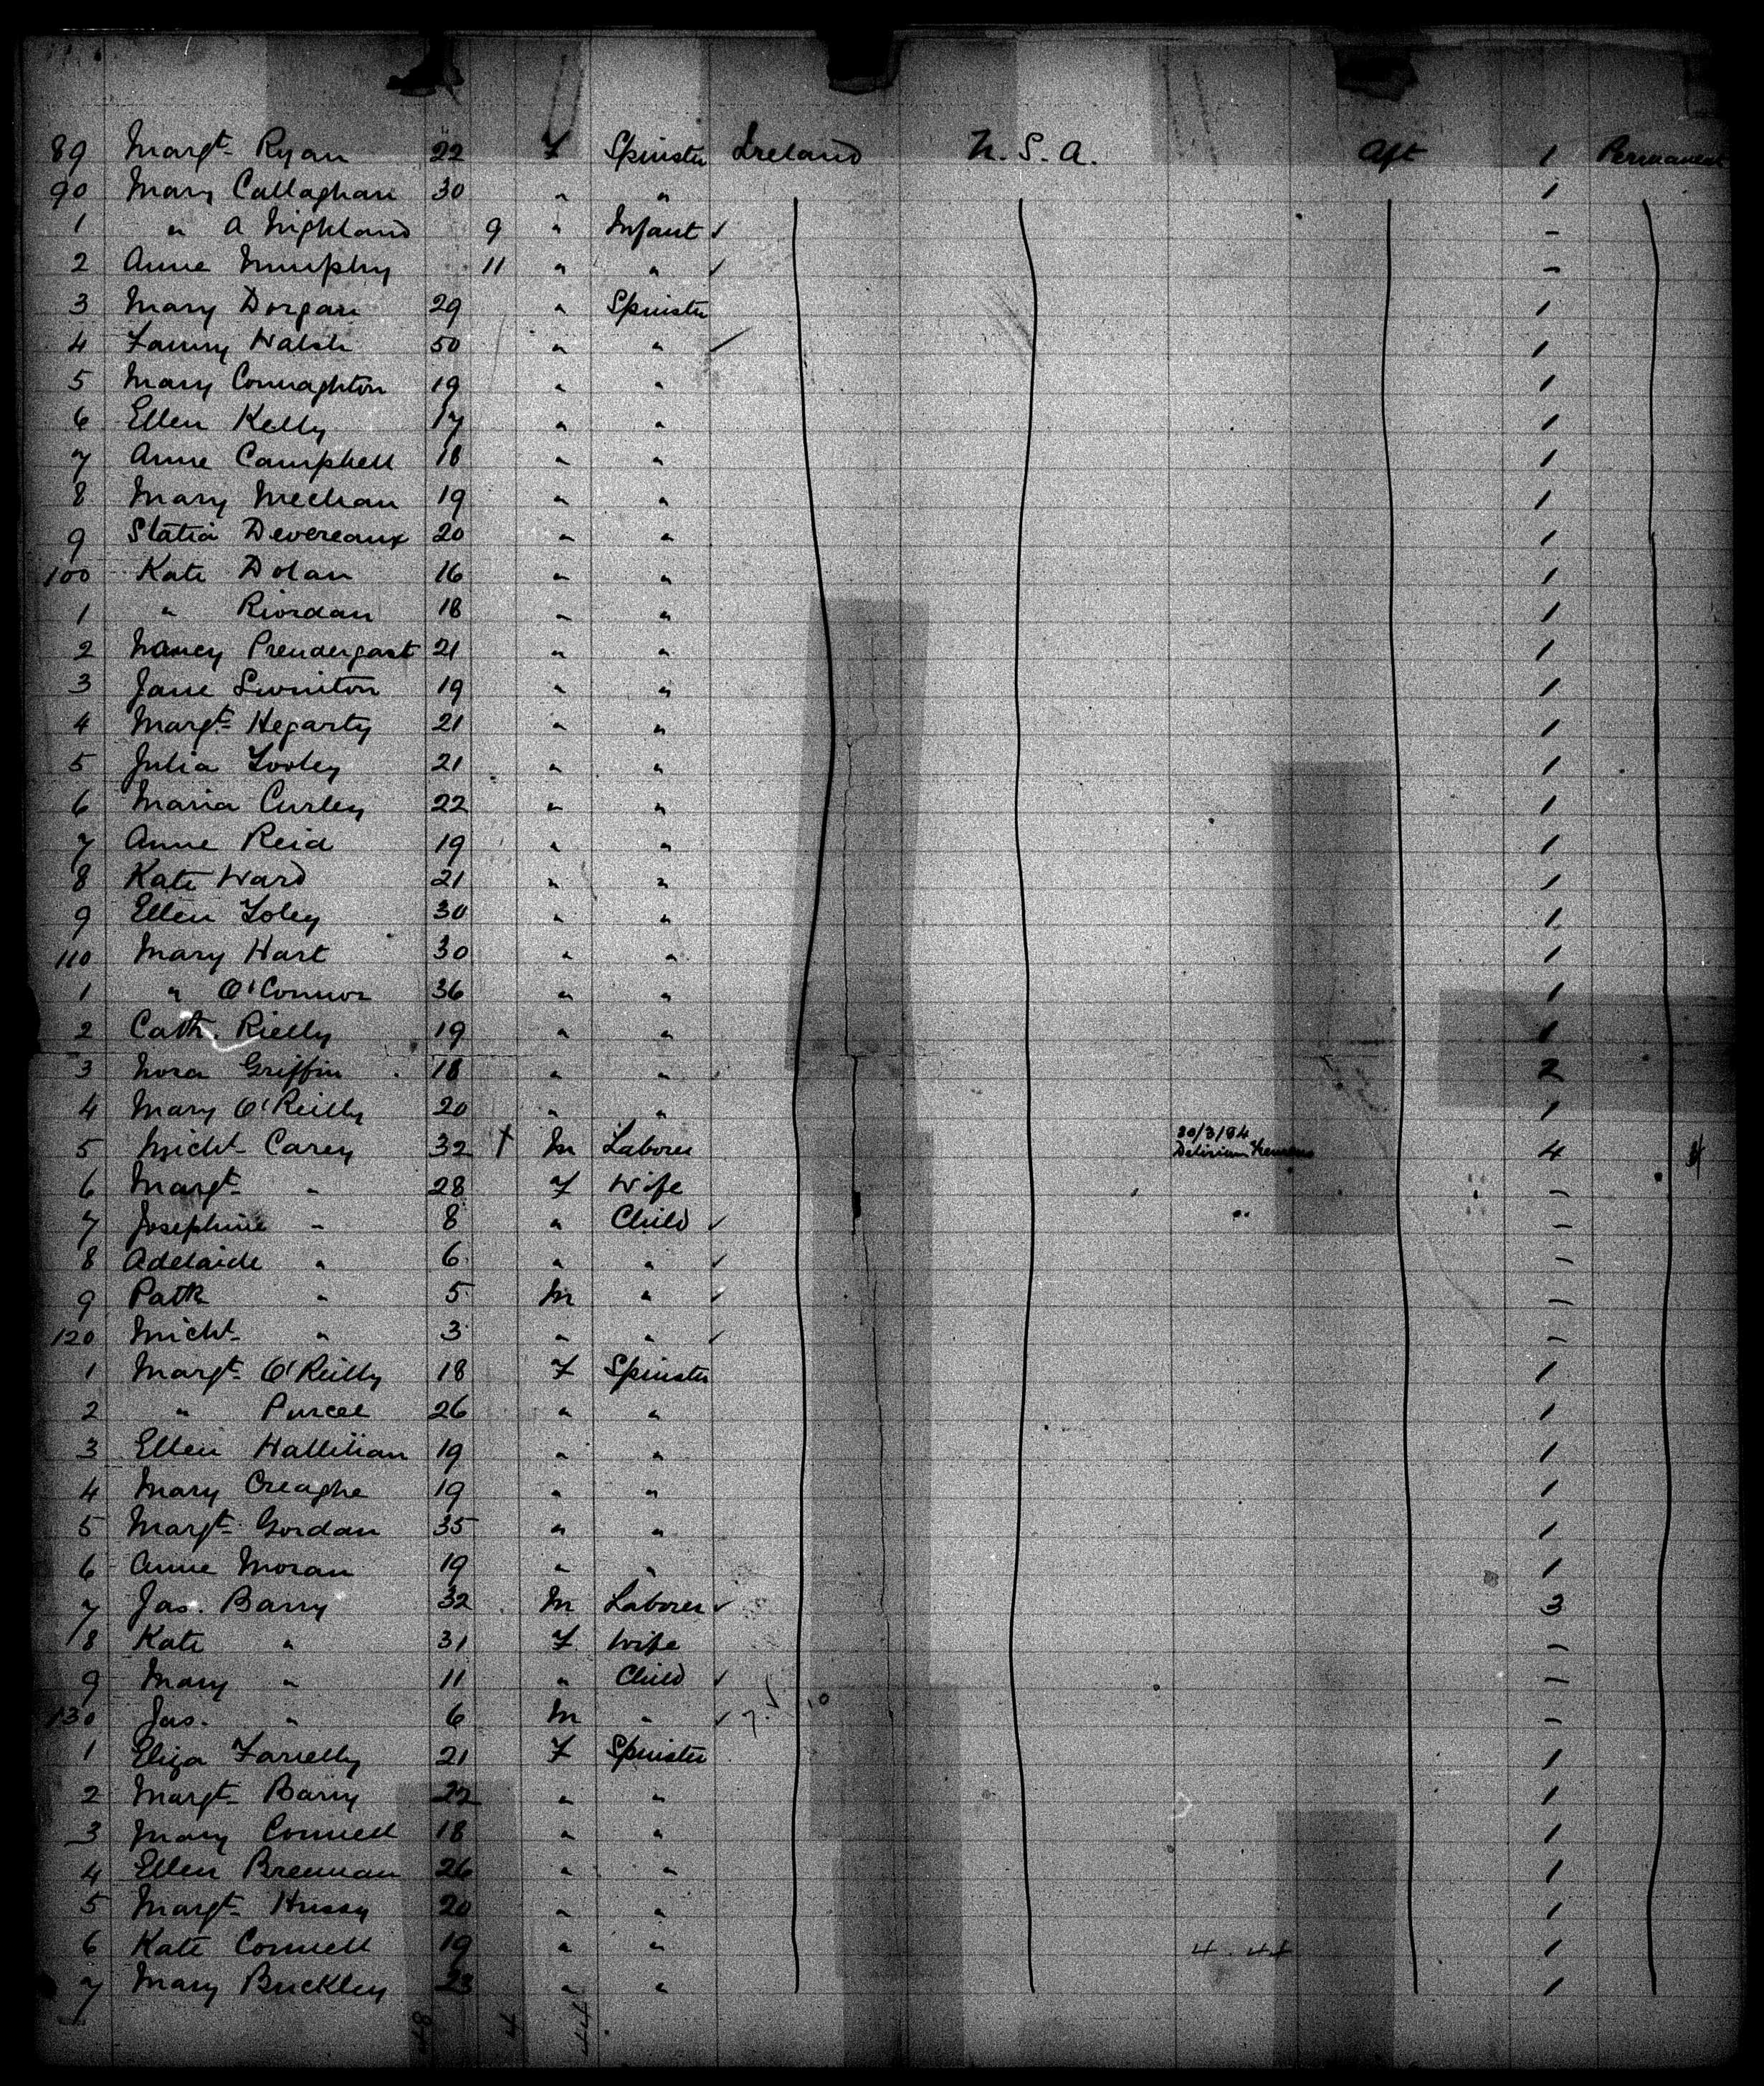 89 Margt Ryan 22 F Spinster Ireland U.S.A. Aft 1 Permanent
90 Mary Callaghan 30 " " 1
1 " A Highland 9 " Infant ✓ -
2 Anne Murphy 11 " " ✓ -
3 Mary Dorgan 29 " Spinster 1
4 Fanny Walsh 50 " " ✓ 1
5 Mary Connaghton 19 " " 1
6 Ellen Kelly 17 " " 1
7 Anne Campbell 18 " " 1
8 Mary Meehan 19 " " 1
9 Statia Devereaux 20 " " 1
100 Kate Dolan 16 " " 1
1 " Riordan 18 " " 1
2 Nancy Prendergast 21 " " 1
3 Jane Swinton 19 " " 1
4 Margt Hegarty 21 " " 1
5 Julia Tooley 21 " " 1
6 Maria Curley 22 " " 1
7 Anne Reid 19 " " 1
8 Kate Ward 21 " " 1
9 Ellen Foley 30 " " 1
110 Mary Hart 30 " " 1
1 " O'Connor 36 " " 1
2 Cath. Rielly 19 " " 1
3 Nora Griffin 18 " " 2
4 Mary O'Reilly 20 " " 1
5 Michl Carey 32 † M Laborer 30/3/84 Delirium Tremens 4
6 Margt " 28 F Wife -
7 Josephine " 8 " Child ✓ -
8 Adelaide " 6 " " ✓ -
9 Patk " 5 M " ✓ -
120 Michl " 3 " " ✓ -
1 Margt O'Reilly 18 F Spinster 1
2 " Purcel 26 " " 1
3 Ellen Hallinan 19 " " 1
4 Mary Creaghe 19 " " 1
5 Margt Gordan 35 " " 1
6 Anne Moran 19 " " 1
7 Jas. Barry 32 M Laborer ✓ 3
8 Kate " 31 F Wife -
9 Mary " 11 " Child ✓ -
130 Jas. " 6 M " ✓ -
1 Eliza Farrelly 21 F Spinster 1
2 Margt Barry 22 " " 1
3 Mary Connell 18 " " 1
4 Ellen Brennan 26 " " 1
5 Margt Hussy 20 " " 1
6 Kate Connell 19 " " 1
7 Mary Buckley 23 " " 1
48 4 44